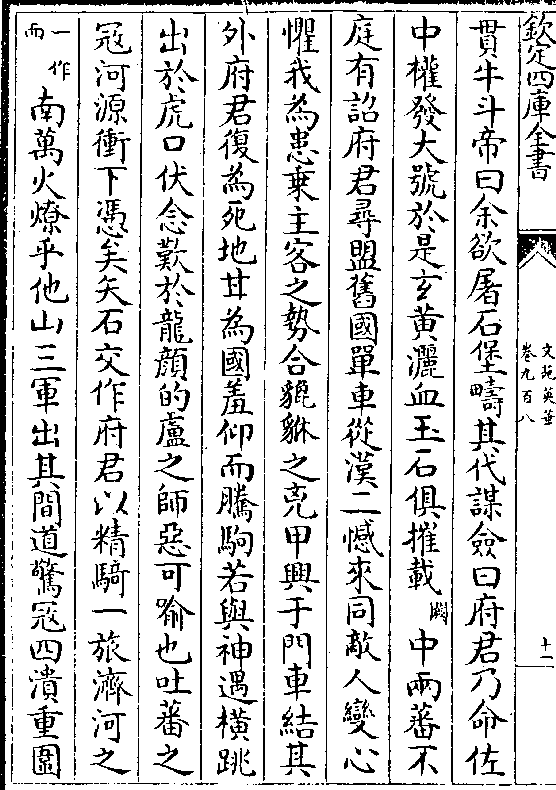 欽定四庫全書
文苑英華
卷九百八
十一
貫牛斗帝曰余欲屠石堡疇其代謀僉曰府君乃命佐
中權發大號於是玄黃灑血玉石俱摧載闕中兩蕃不
庭有詔府君尋盟舊國單車從漢二憾來同敵人變心
懼我為患乗主客之勢合貔貅之兇甲興于門車結其
外府君復為死地甘為國羞仰而騰駒若與神遇橫跳
出於虎口伏念歎於龍顔的盧之師惡可踰也吐蕃之
冦河源衝下憑矣矢石交作府君以精騎一旅濟河之
一作而南萬火燎乎他山三軍出其間道驚冦四潰重圍